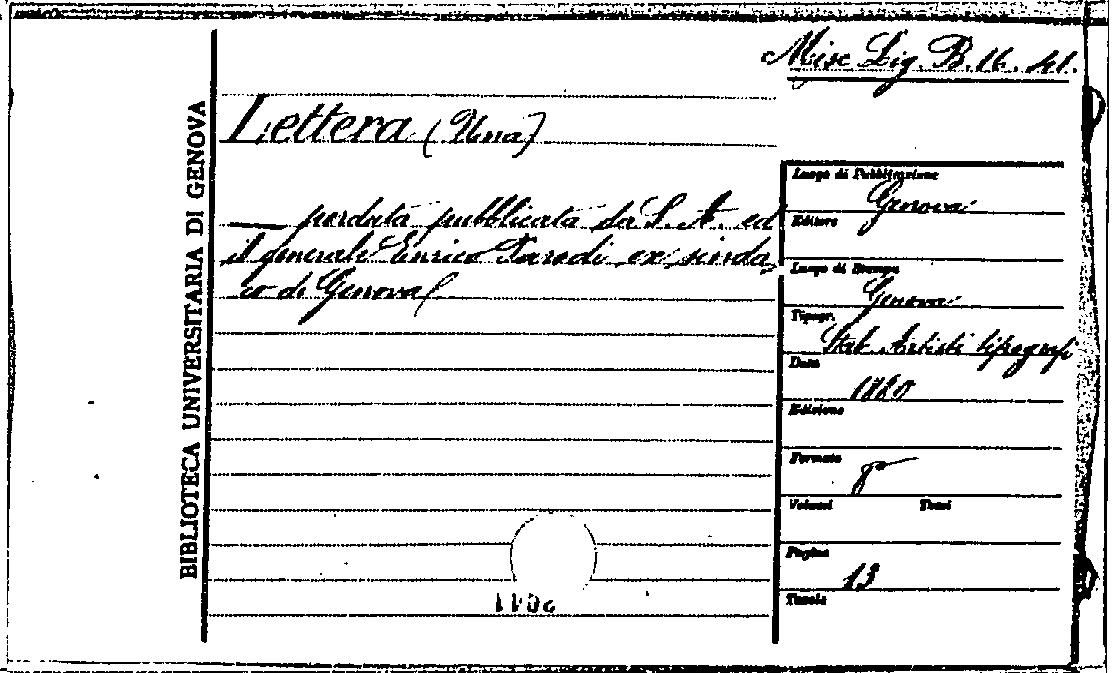 Misc Lig. B. 16. 41.
BIBLIOTECA UNIVERSITARIA DI GENOVA
Lettera (Una)
— perduta pubblicata da S. A. ed
il generale Enrico Parodi ex sinda-
co di Genova/
Luogo di Pubblicazione
Genova
Editore
Luogo di Stampa
Genova
Tipogr.
Stab. Artisti tipografi
Data
Edizione
Formato
8º
Volumi Tomi
Pagine
13
Tavole